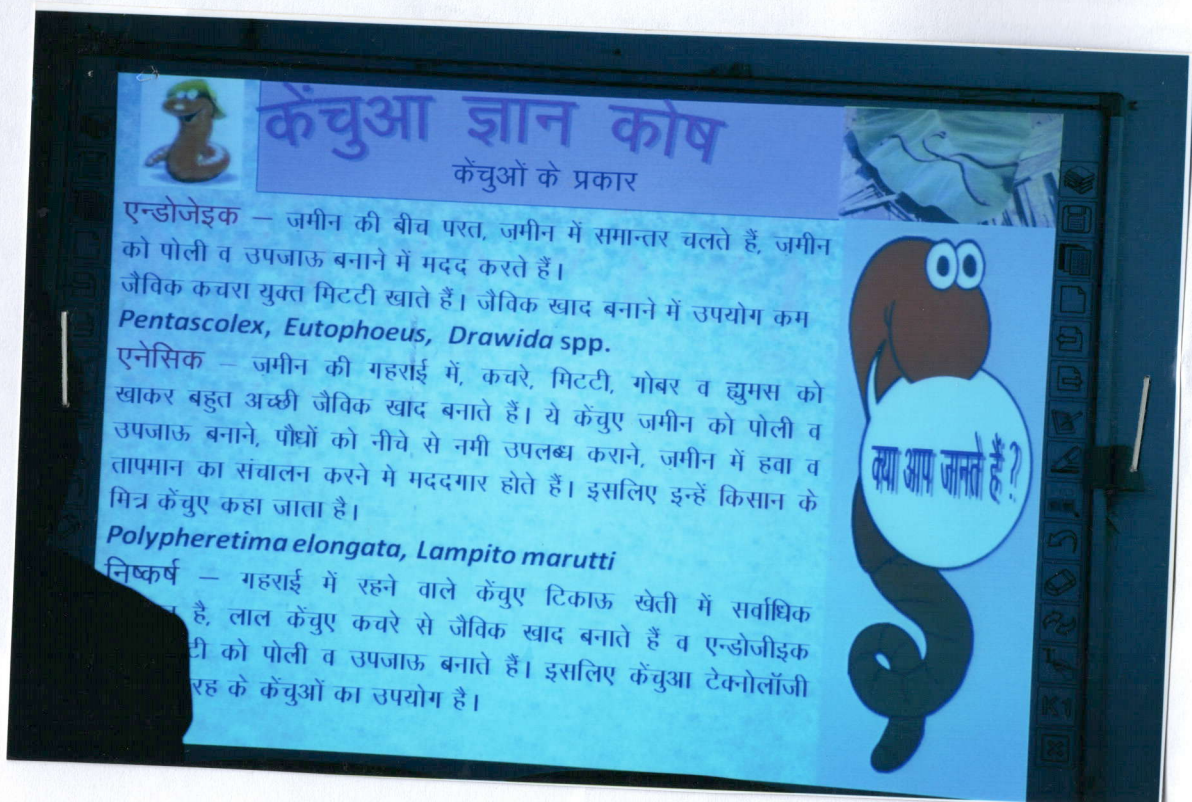 केंचुआ ज्ञान कोष
केंचुओं के प्रकार
एन्डोजेइक – जमीन की बीच परत, जमीन में समान्तर चलते हैं, जमीन
को पोली व उपजाऊ बनाने में मदद करते हैं।
जैविक कचरा युक्त मिटटी खाते हैं। जैविक खाद बनाने में उपयोग कम
Pentascolex, Eutophoeus, Drawida spp.
एनेसिक – जमीन की गहराई में, कचरे, मिटटी, गोबर व ह्युमस को
खाकर बहुत अच्छी जैविक खाद बनाते हैं। ये केंचुए जमीन को पोली व
उपजाऊ बनाने, पौधों को नीचे से नमी उपलब्ध कराने, जमीन में हवा व
तापमान का संचालन करने मे मददगार होते हैं। इसलिए इन्हें किसान के
मित्र केंचुए कहा जाता है।
Polypheretima elongata, Lampito marutti
निष्कर्ष – गहराई में रहने वाले केंचुए टिकाऊ खेती में सर्वाधिक
है, लाल केंचुए कचरे से जैविक खाद बनाते हैं व एन्डोजीइक
को पोली व उपजाऊ बनाते हैं। इसलिए केंचुआ टेक्नोलॉजी
के केंचुओं का उपयोग है।
क्या आप जानते हैं?